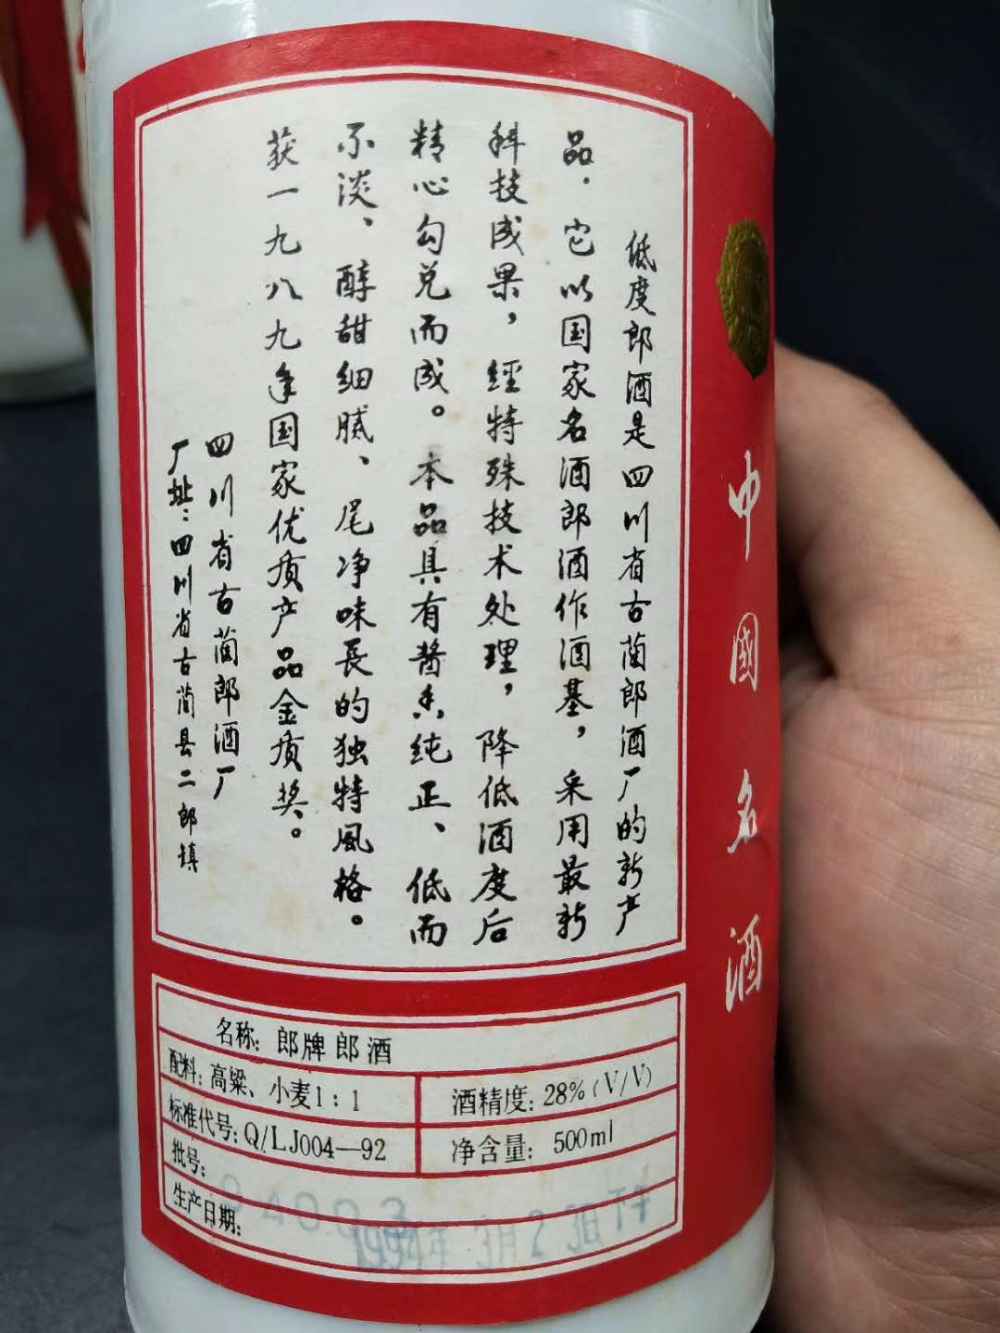 低度郎酒是四川省古蔺郎酒厂的新产
品．它以国家名酒郎酒作酒基，采用最新
科技成果，經特殊技术处理，降低酒度后
精心勾兑而成。本品具有酱香纯正、低而
不淡、醇甜细腻、尾净味長的独特風格。
获一九八九年国家优质产品金质奖。
四川省古蔺郎酒厂
厂址：四川省古蔺县二郎镇
中國名酒
名称：郎牌郎酒
配料：高粱、小麦1：1
酒精度：28%（V/V）
标准代号：Q/LJ004—92
净含量：500ml
批号：
生产日期：